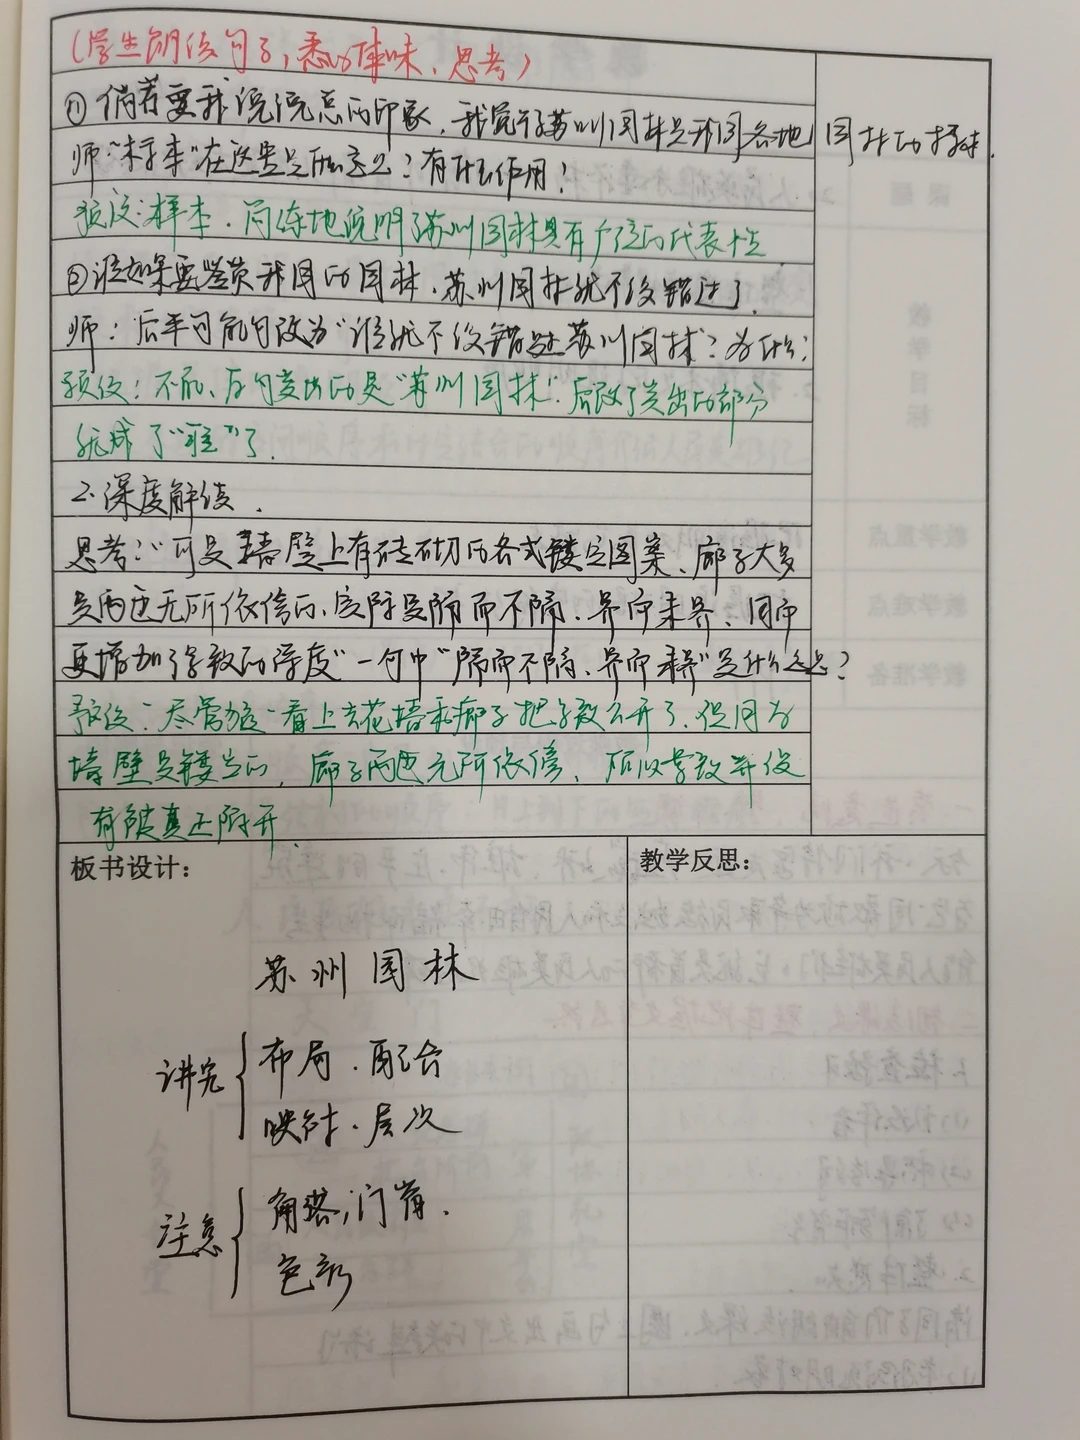 （学生朗读句子，悉心体味、思考）
①倘若要我说说总的印象，我觉得苏州园林是我国各地园林的标本.
师：“标本”在这里是什么意思？有什么作用！
预设：样本. 简练地说明了苏州园林具有广泛的代表性
②谁如果要鉴赏我国的园林，苏州园林就不该错过了.
师：后半句能句改为“谁就不该错过苏州园林”？为什么：
预设：不能，后句突出的是“苏州园林”. 后改了突出的部分
就成了“谁”了.
2.深度解读.
思考：“可是墙壁上有砖砌的各式镂空图案、廊子大多
是两边无所依傍的，实际是隔而不隔、界而未界、因而
更增加了景致的深度”一句中“隔而不隔、界而未界”是什么意思？
预设：尽管猛一看上去花墙和廊子把景致分开了. 但因为
墙壁是镂空的, 廊子两边无所依傍、所以景致并没
有被真正隔开.
板书设计：
教学反思：
苏州园林
讲究
布局、配合
映衬、层次
注意
角落；门窗.
色彩